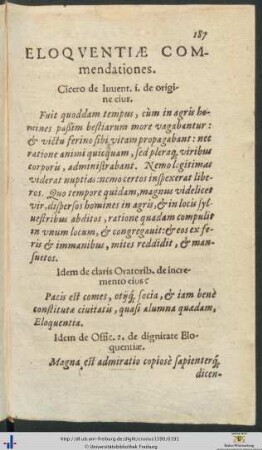 187
ELOQVENTIÆ COM-
mendationes.
Cicero de Inuent. 1. de origi-
ne eius.
Fuit quoddam tempus, cùm in agris ho-
mines passim bestiarum more vagabantur:
& victu ferino sibi vitam propagabant: nec
ratione animi quicquam, sed pleraq; viribus
corporis, administrabant. Nemo legitimas
viderat nuptias: nemo certos inspexerat libe-
ros. Quo tempore quidam, magnus videlicet
vir, dispersos homines in agris, & in locis syl-
uestribus abditos, ratione quadam compulit
in vnum locum, & congregauit: & eos ex fe-
ris & immanibus, mites reddidit, & man-
suetos.
Idem de claris Oratorib. de incre-
mento eius:
Pacis est comes, otijq; socia, & iam benè
constitutæ ciuitatis, quasi alumna quædam,
Eloquentia.
Idem de Offic. 2. de dignitate Elo-
quentiæ.
Magna est admiratio copiosè sapienterq;
dicen-
© Universitätsbibliothek Freiburg